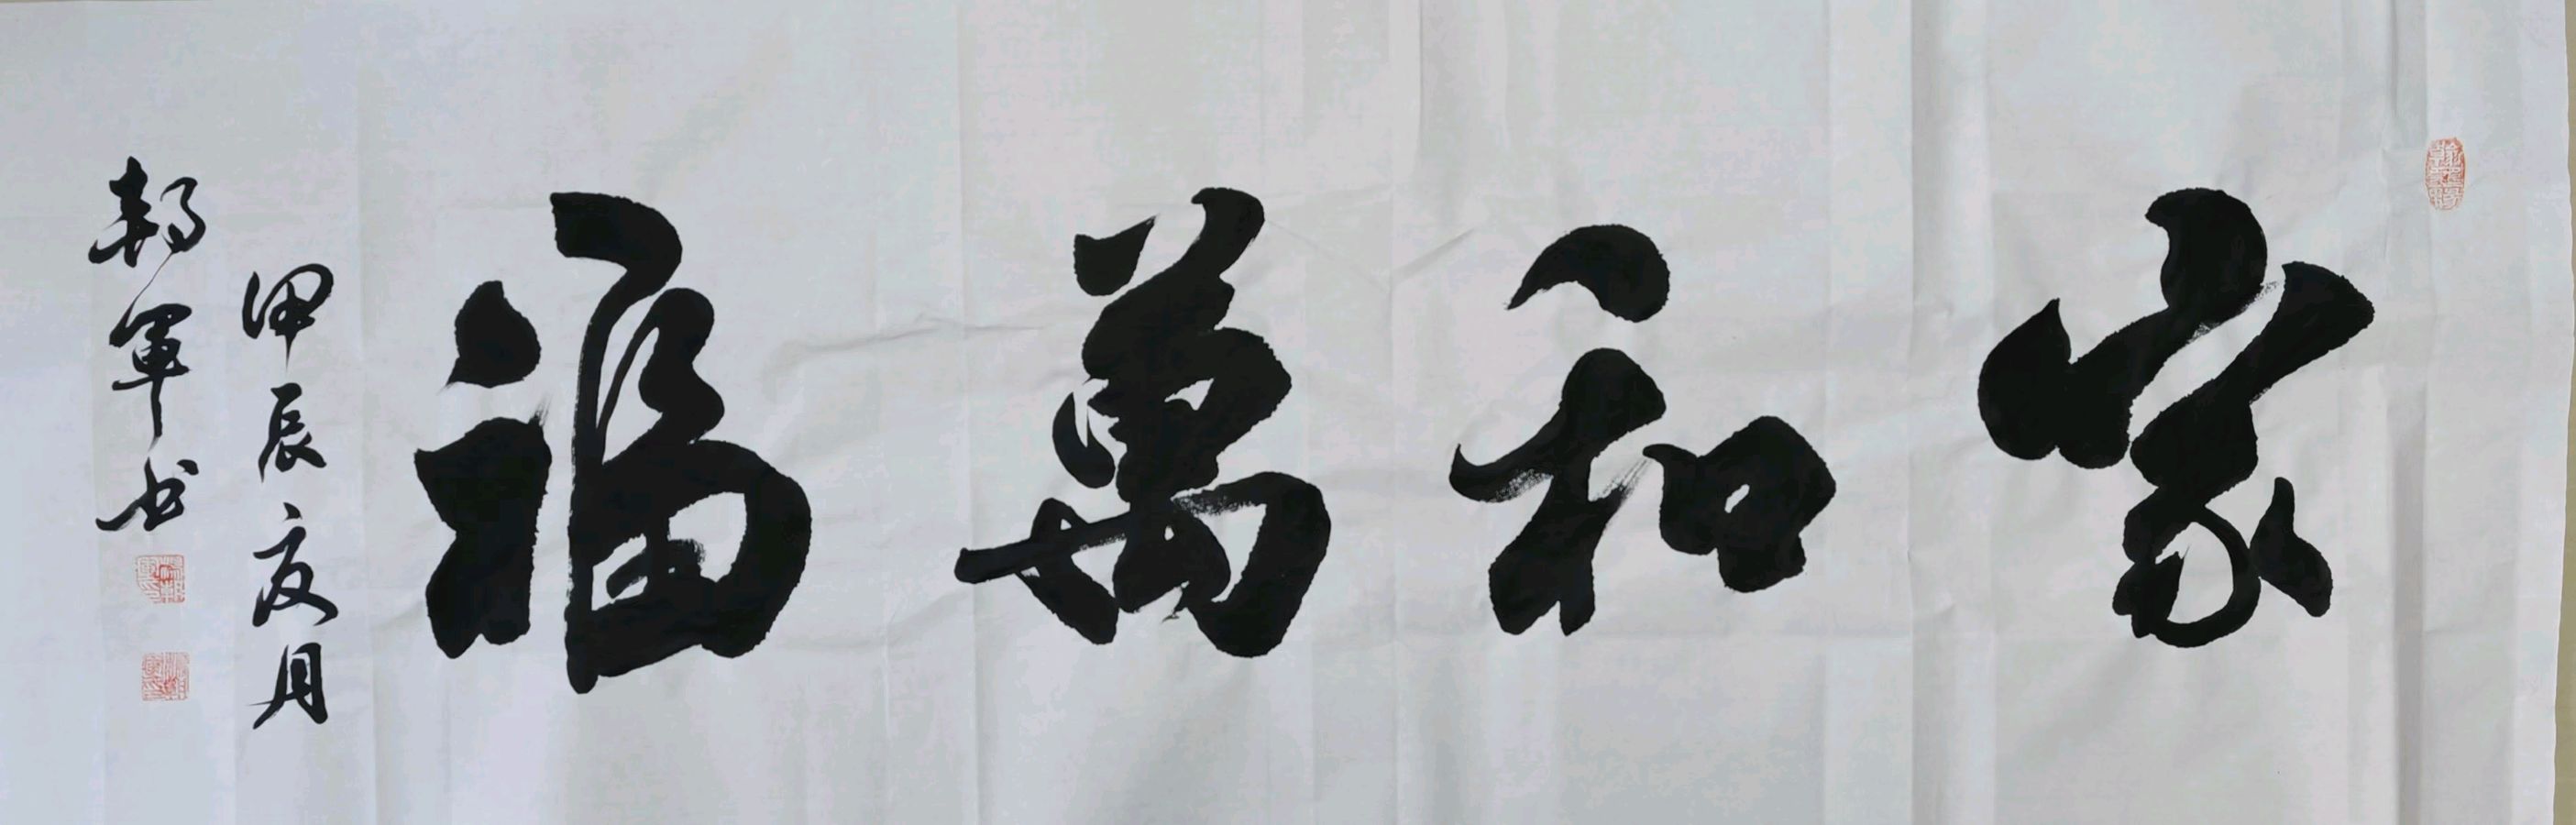 家和萬福
甲辰夏月
軍书